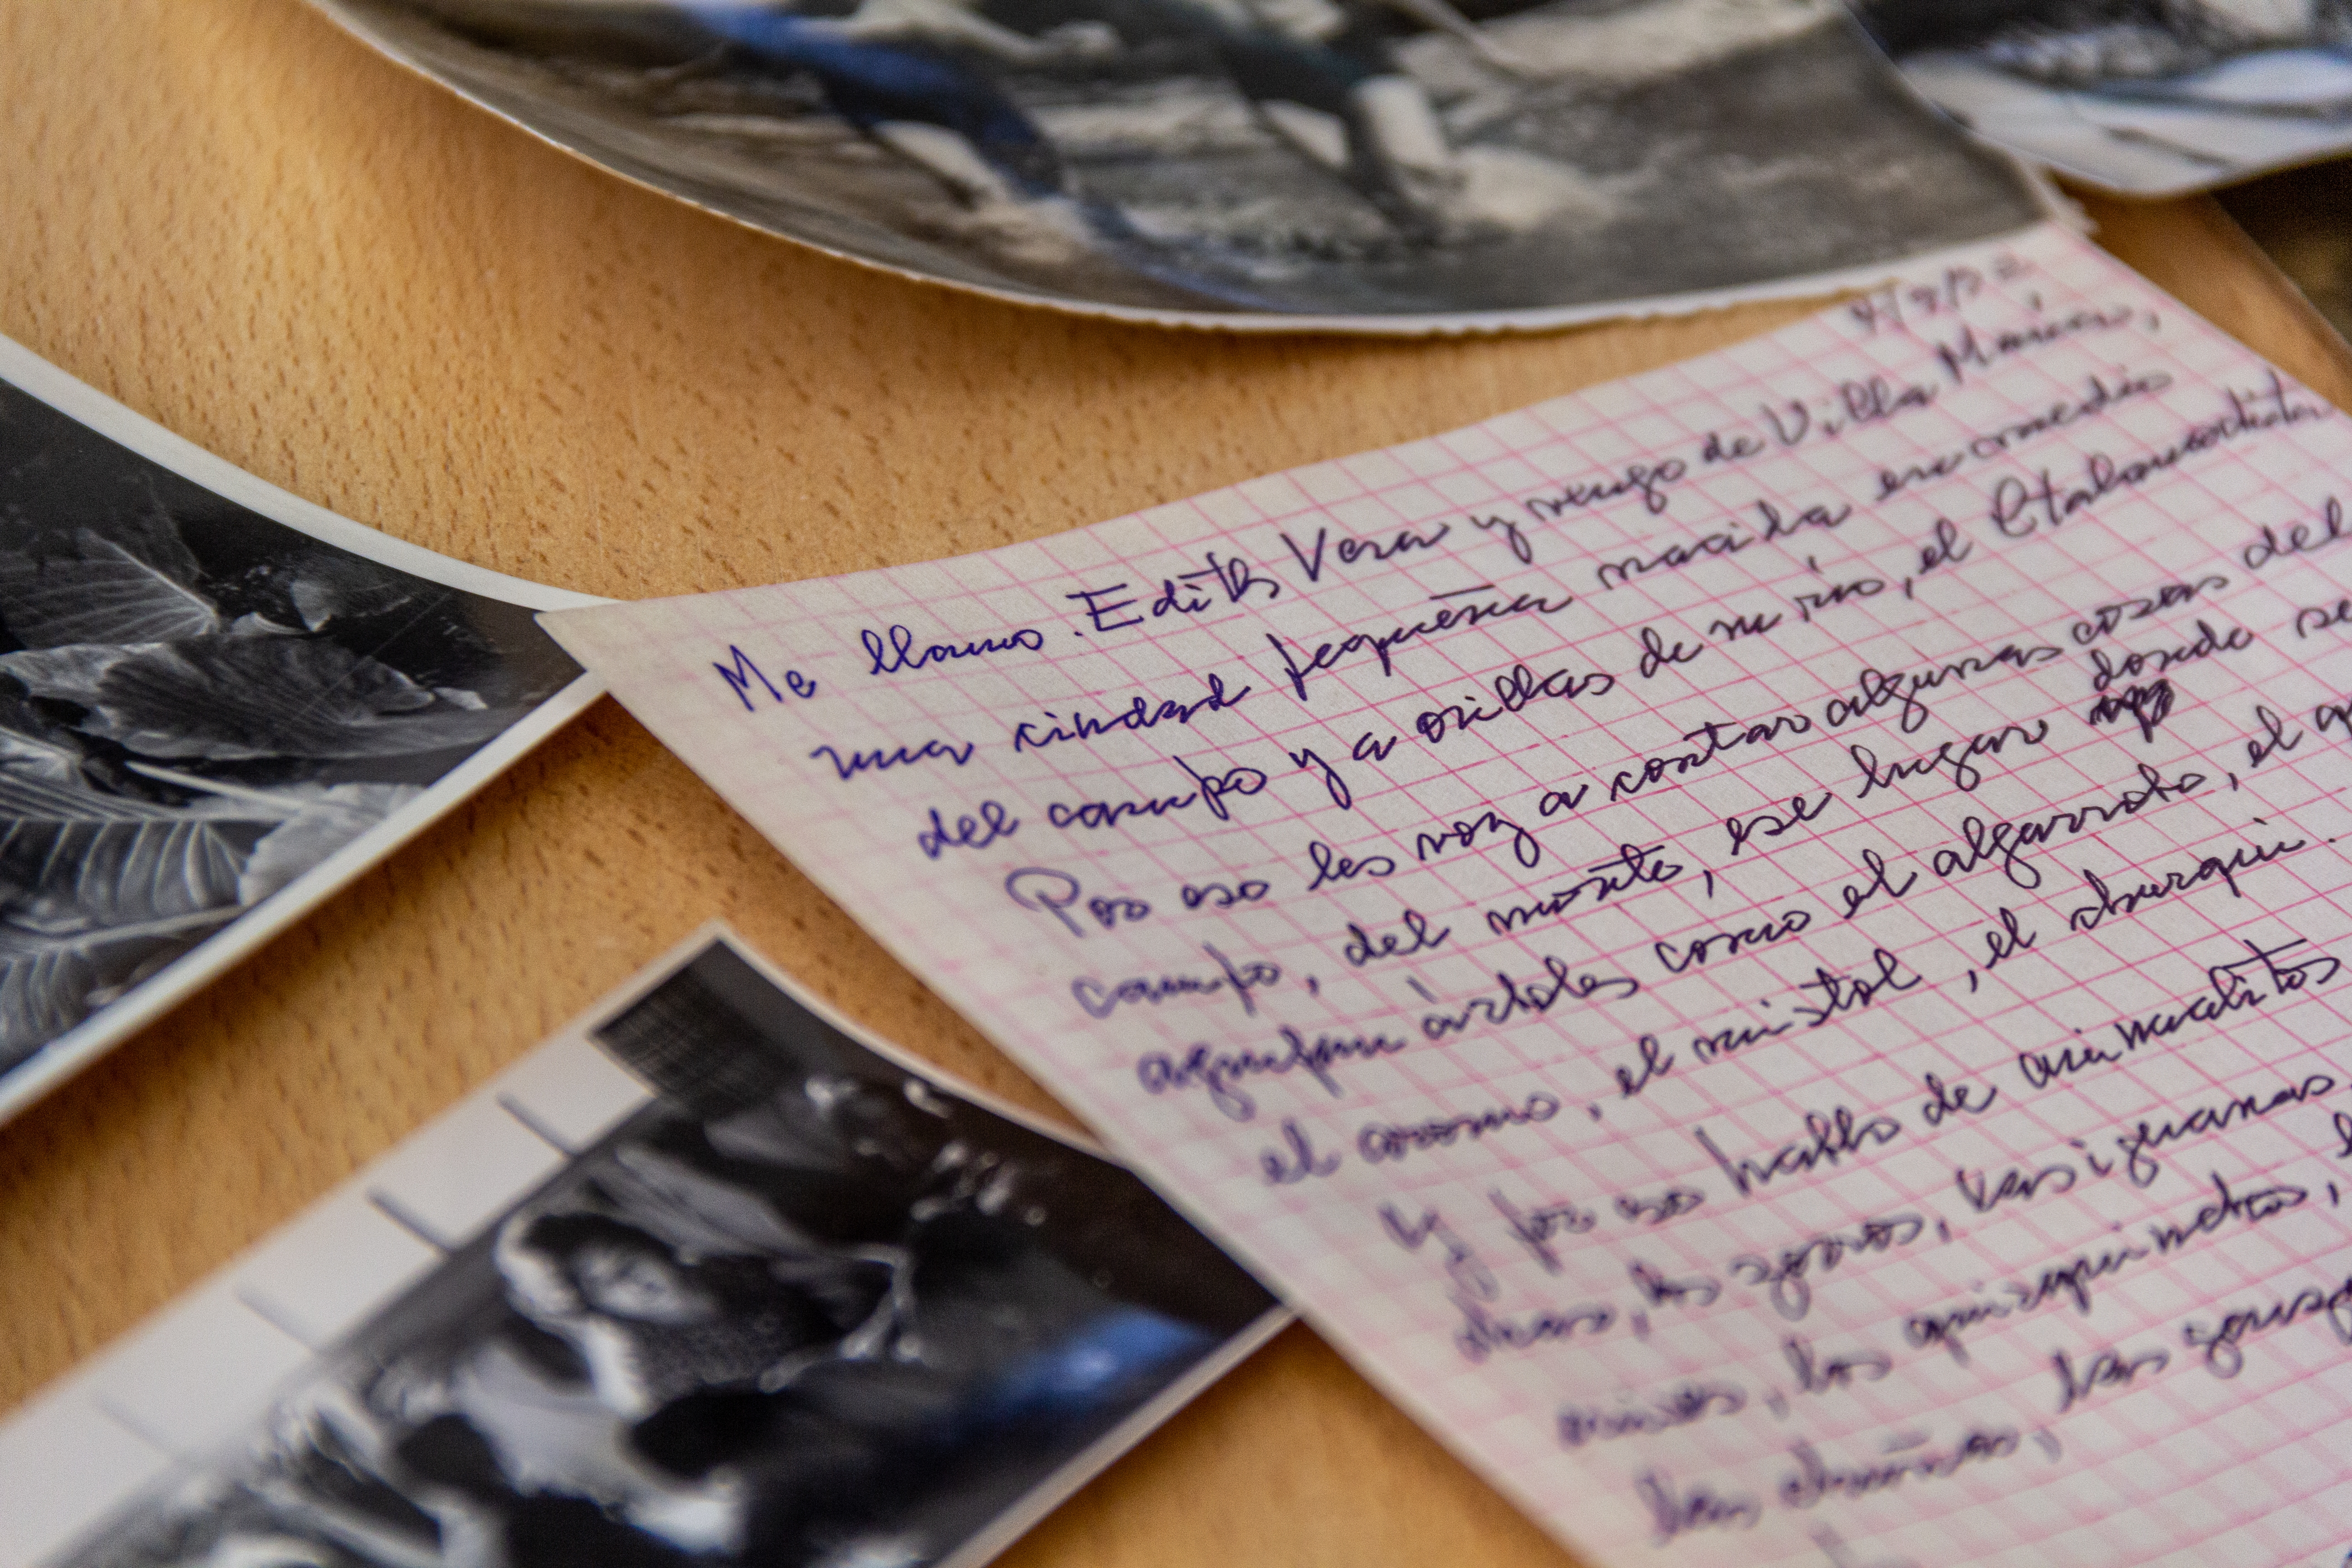 Me llamo Edith Vera y vengo de Villa María,
una ciudad pequeña nacida en medio
del campo y a orillas de un río, el Ctalamochita
Por eso les voy a contar algunas cosas del
campo, del monte, ese lugar donde se
agrupan árboles como el algarrobo, el
el aromo, el mistol, el churqui.
Y por eso hablo de animalitos
los zorros, las iguanas
los quirquinchos,
las